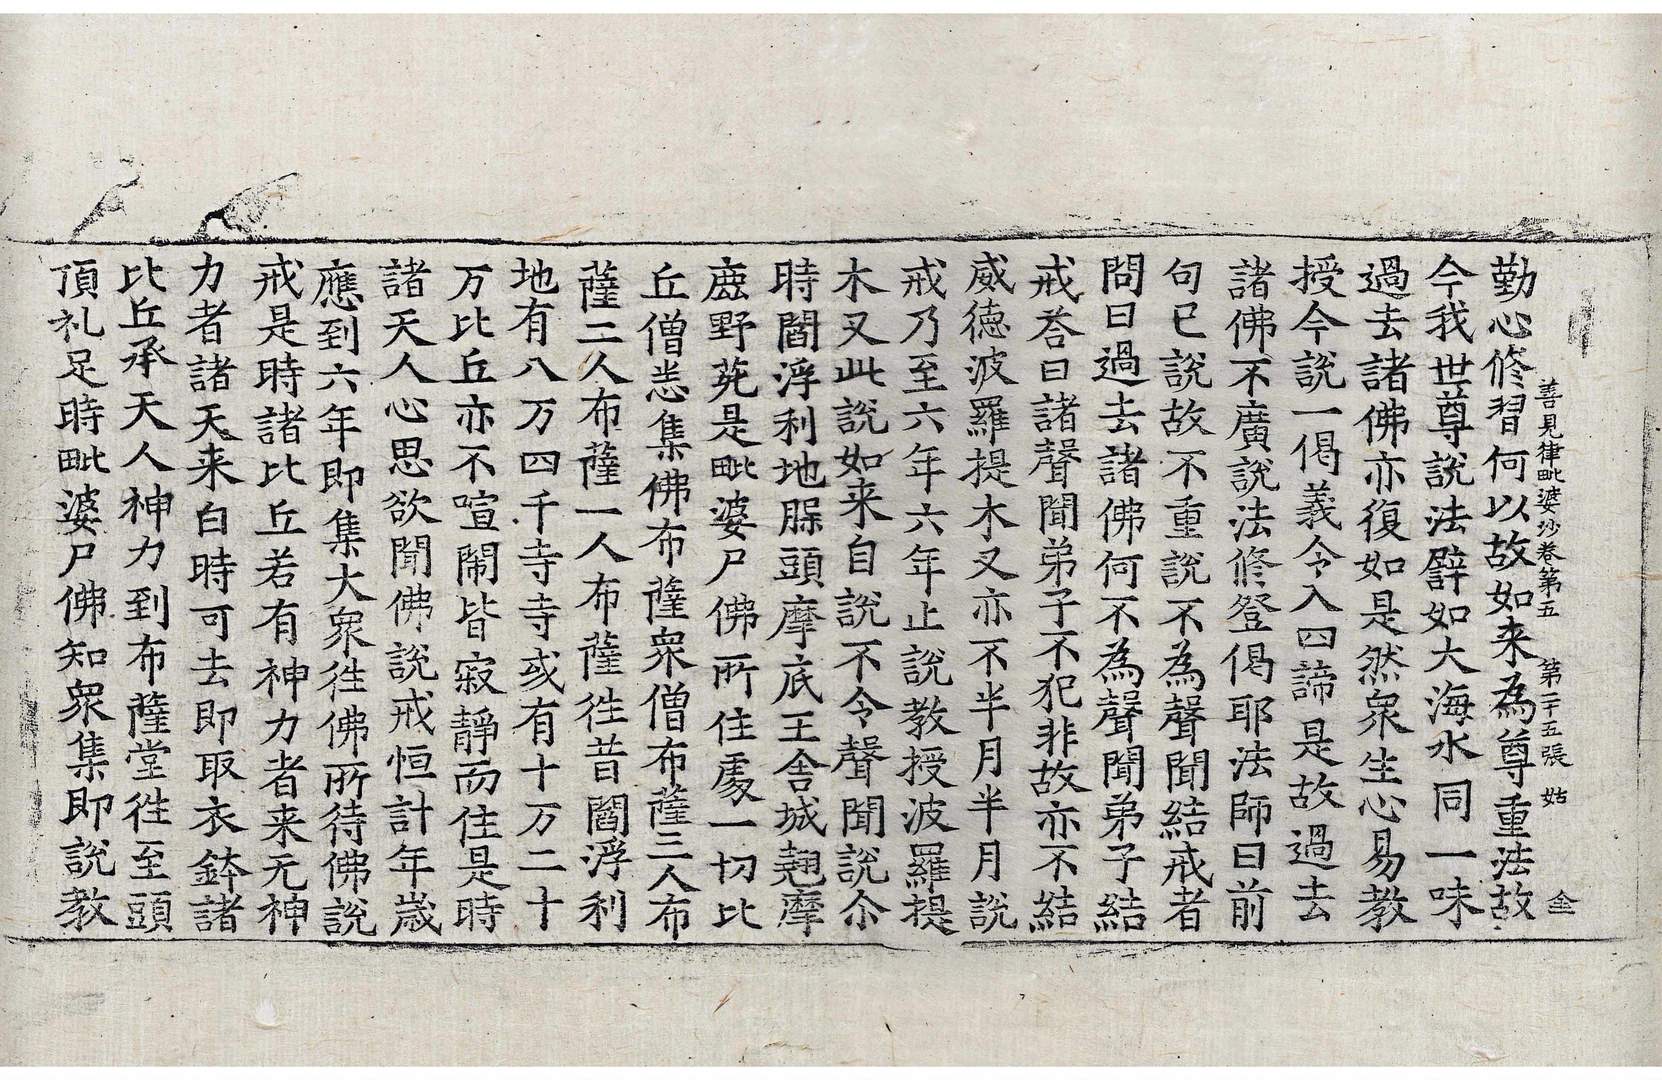 善見律毗婆沙卷第五　第二十五張　姑
勤心修習何以故如来為尊重法故
今我世尊說法譬如大海水同一味
過去諸佛亦復如是然衆生心易教
授今說一偈義令入四諦是故過去
諸佛不廣說法修登偈耶法師曰前
句已說故不重說不為聲聞結戒者
問曰過去諸佛何不為聲聞弟子結
戒荅曰諸聲聞弟子不犯非故亦不結
威德波羅提木叉亦不半月半月說
戒乃至六年六年止說教授波羅提
木叉此說如来自說不令聲聞說尒
時閻浮利地脲頭摩底王舍城翹摩
鹿野苑是毗婆尸佛所住處一切比
丘僧悉集佛布薩衆僧布薩三人布
薩二人布薩一人布薩徃昔閻浮利
地有八万四千寺寺或有十万二十
万比丘亦不喧閙皆寂靜而住是時
諸天人心思欲聞佛說戒恒計年歲
應到六年即集大衆徃佛所待佛說
戒是時諸比丘若有神力者来无神
力者諸天来白時可去即取衣鉢諸
比丘承天人神力到布薩堂徃至頭
頂礼足時毗婆尸佛知衆集即說教